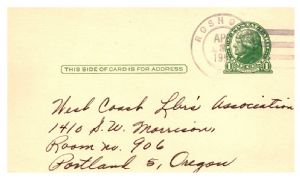 ROSH
AP
19
THIS SIDE OF CARD IS FOR ADDRESS
West Coast Lbr's Association
1410 S.W. Morrison,
Room no. 906
Portland 5, Oregon